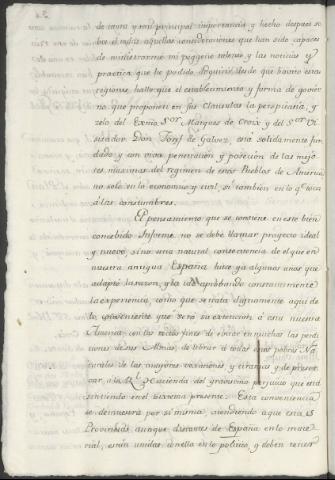 de tanta y tan principal importancia y hecho despues so
bre el mismo aquellas consideraciones que han sido capaces
de ministrarme mi pequeño talento y las noticias y
practica que he podido adquirir desde que havito estas
regiones, hallo que el establecimiento y forma de govier
no que proponen en sus clausulas la perspicacia, y
zelo del Exmo. Sor. Marques de Croix y del Sor. Vi
sitador Don Josef de Galvez, está solidamente fun
dado y con mayor penetracion y posecion de las mejo
res maximas del regimen de estos Pueblos de America
no solo en lo economico y rural, si tambien en lo qe. toca
á las constumbres.
El pensamiento que se contiene en este bien
concebido Informe no se debe llamar proyecto ideal
y nuevo, sino una natural consecuencia de el que en
nuestra antigua España hara ya algunos años que
adaptó la razon, y la ido aprobando constantemente
la experiencia, como que se trata dignamente aqui de
lo combeniente que será su extencion á esta nuestra
America con los rectos fines de evitar en muchas las perdi
ciones de sus Almas, de librar á todos estos pobres Na
turales de las mayores vexaciones, y tiranias y de preser
var á la Rl. Hacienda del gravisimo perjuicio que está
sintiendo en el sistema presente. Esta conveniencia
se demuestra por si misma, atendiendo aque estas
Provincias aunque distantes de España en lo mate
rial, están unidas con ella en lo politico, y deben tener